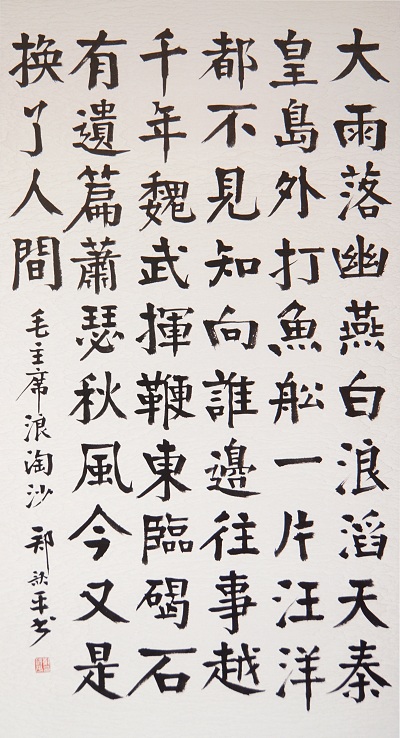 大雨落幽燕白浪滔天秦
皇島外打魚船一片汪洋
都不見知向誰邊往事越
千年魏武揮鞭東臨碣石
有遺篇蕭瑟秋風今又是
換了人間
毛主席浪淘沙 鄭平书